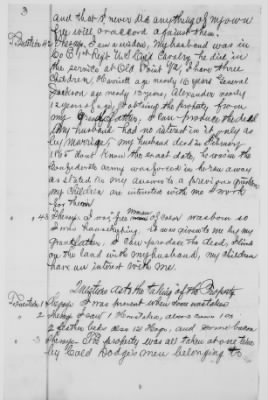 3
and that I never did anything of my own
free will or accord against them.
I am a widow, My husband was in
Co E 1st Regt Cavalry he died in
the service at Old Point Va, I have three
Children, Harriet age nearly 16 years General
Jackson age nearly 13 years, Alexander nearly
12 years of age, I obtained the property from
my Grandfather, I can produce the deed
My husband had no interest in it only as
by marriage, my husband died in February
1865 dont know the exact date, he was in the
Confederate Army was forced in he ran away
as stated in my answer to a previous question
my children are interested with me I work
for them
" 43 I was free woman was born so
I was housekeeping, it was given to me by my
Grandfather. I can produce the deed, I lived
on the land with my husband, my children
have an interest with me.
Questions as to the taking of the Property
Question 1 I was present when it was taken
" 2 I saw 1 Horse taken, also
2 Feather beds also 12 Hogs, and some bacon
" 3 The property was all taken at one time
by Col Dodge's men belonging to